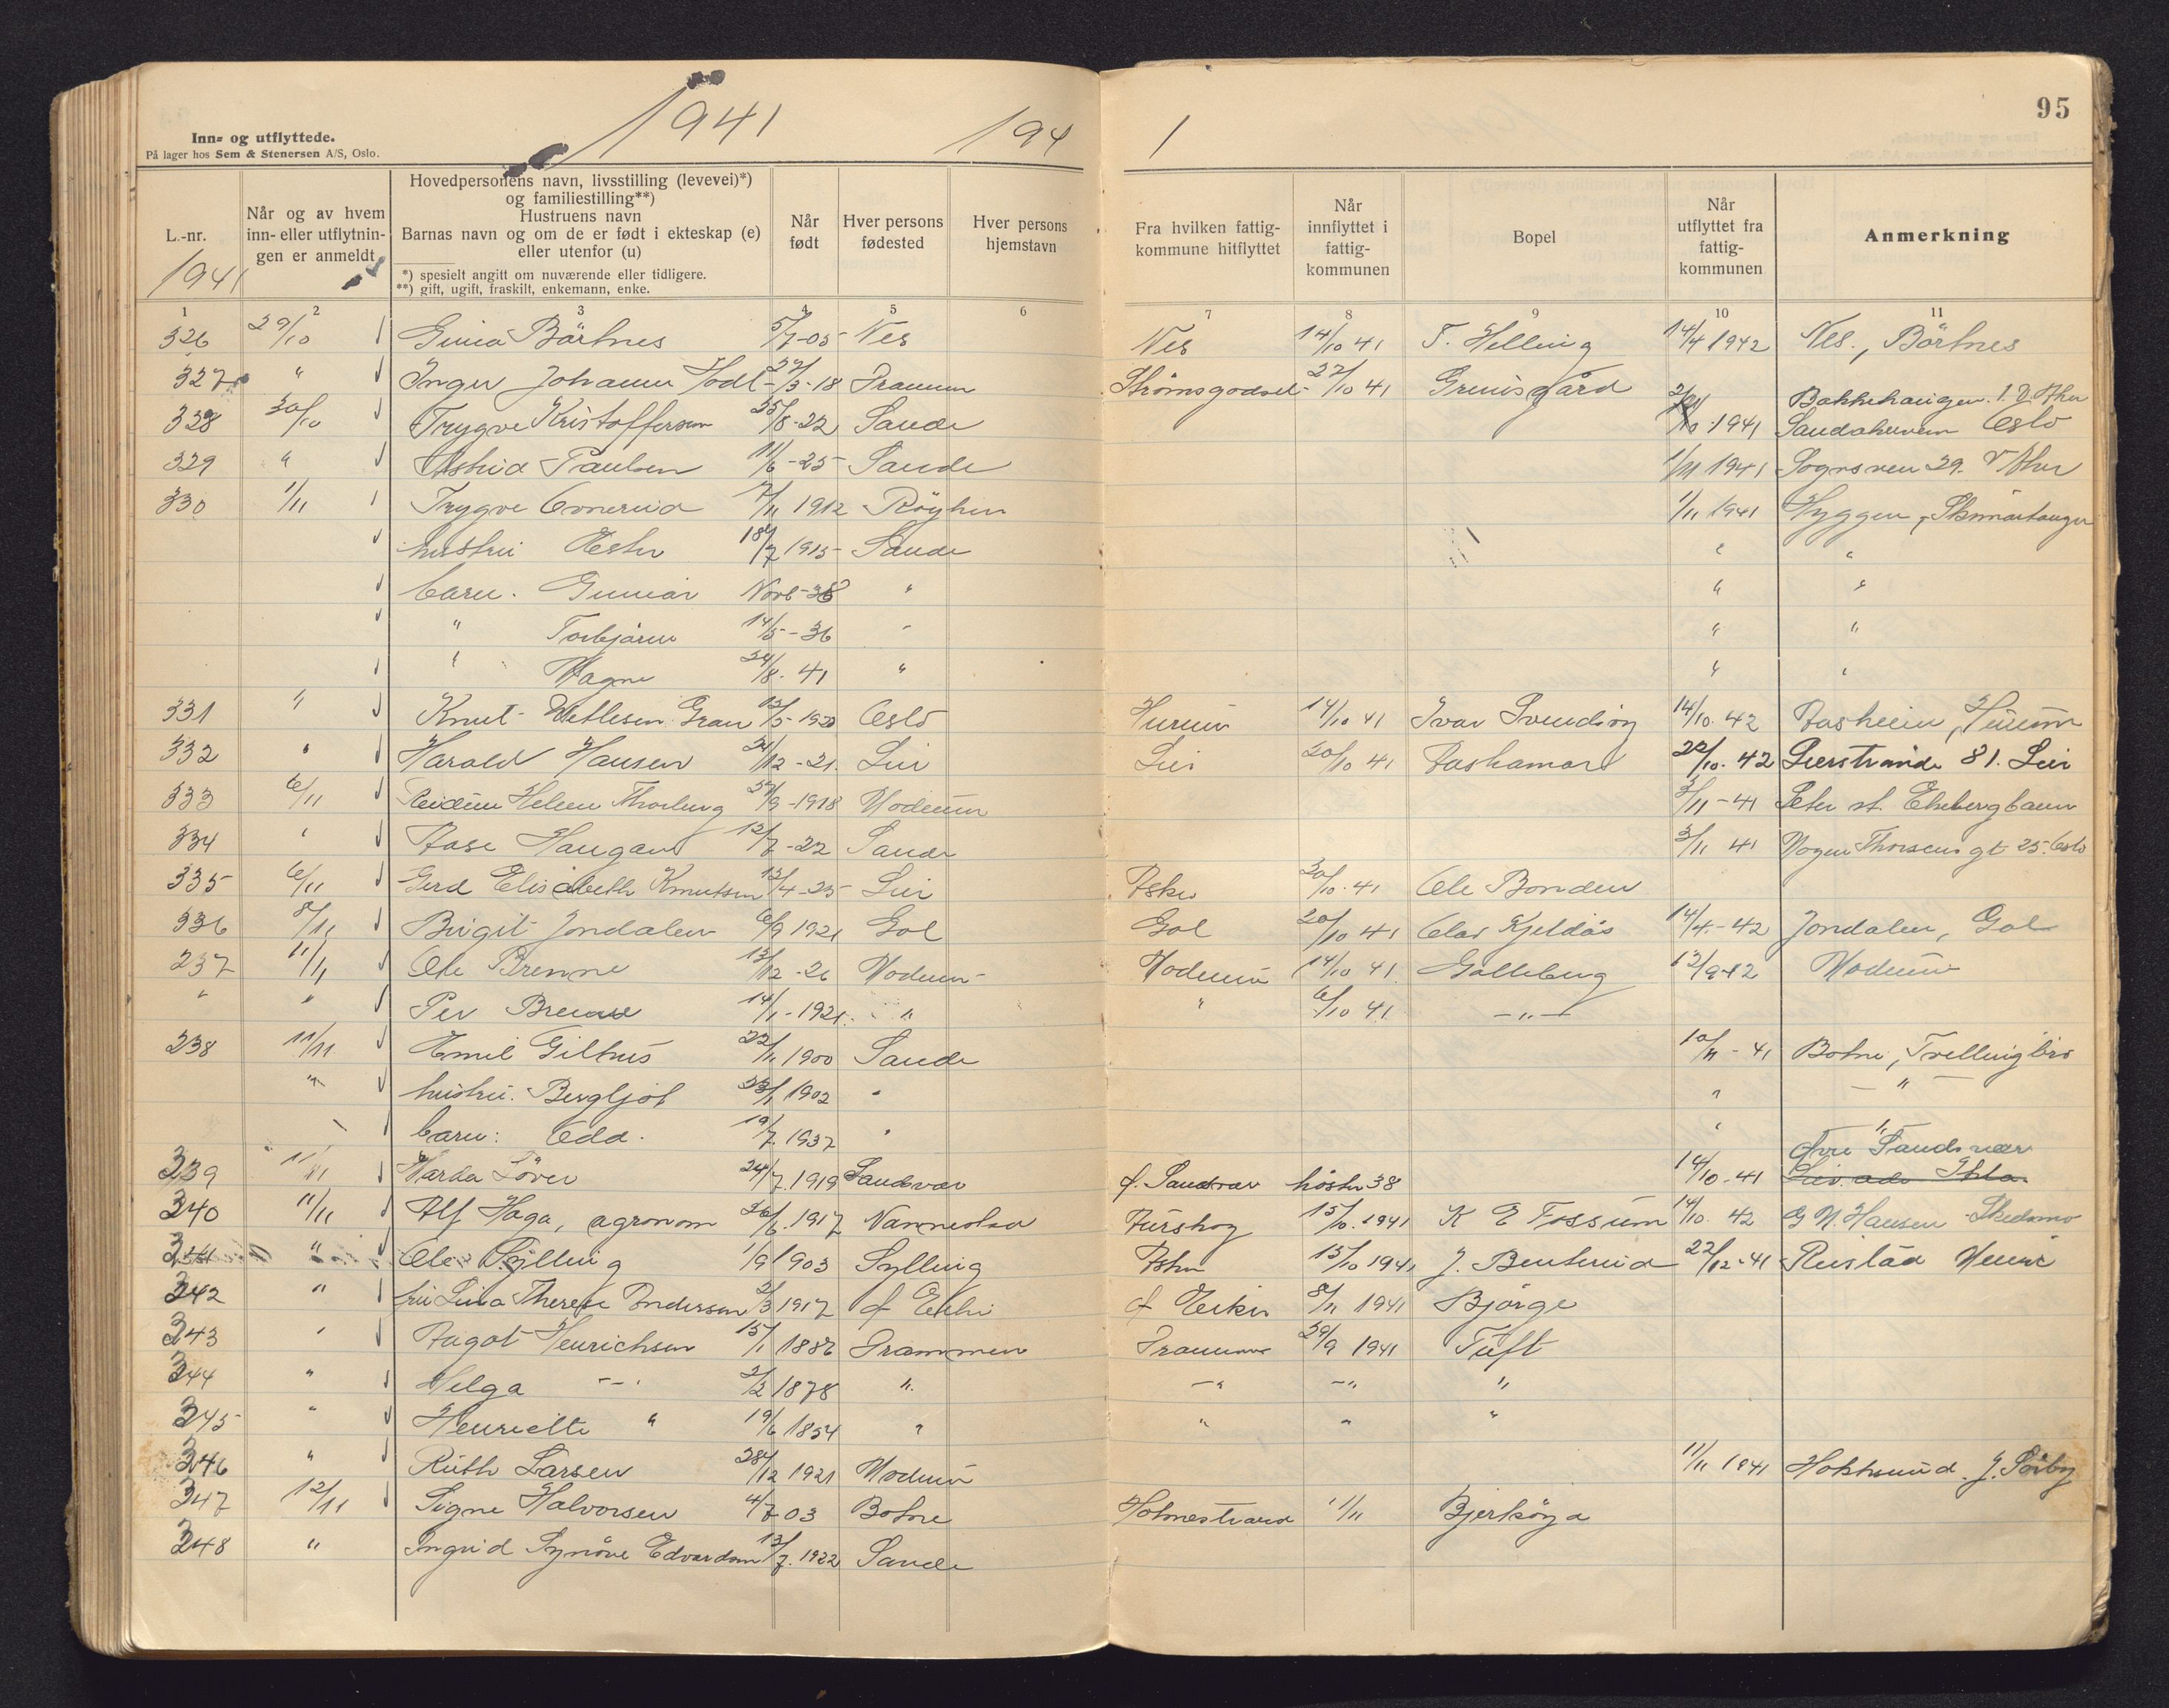 1941
194
1
95
Inn- og utflyttede.
På lager hos Sem & Stenersen A/S, Oslo.
L.-nr.
1941
Når og av hvem inn- eller utflytningen er anmeldt
Hovedpersonens navn, livsstilling (levevei)*)
og familiestilling**)
Hustruens navn
Barnas navn og om de er født i ekteskap (e)
eller utenfor (u)
*) spesielt angitt om nuværende eller tidligere.
**) gift, ugift, fraskilt, enkemann, enke.
Når født
Hver persons fødested
Hver persons hjemstavn
Fra hvilken fattigkommune hitflyttet
Når innflyttet i fattigkommunen
Bopel
Når utflyttet fra fattigkommunen
Anmerkning
1 2 3 4 5 6 7 8 9 10 11
326 29/10 Börtnes 5/7-05 Nes Nes 14/10 41 T. Helling 14/4 1942 Nes., Börtnes
327 " Inger Johanne 27/3-18 Strömsgodset 27/10 41 Grimsgård
328 30/10 Trygve Kristoffersen 25/8-22 Sande 1941 Oslo
329 " Astrid Paulsen 11/6-25 Sande 1/11 1941 Sognsven 29.
330 1/11 Trygve 7/11 1912 Röyken 1/11 1941 Hyggen,
hustru Ester 18/7 1915 Sande " "
barn. Gunnar Novb-38 " " "
" Torbjörn 14/5-36 " " "
" Magne 24/8-41 " " "
331 " Knut Gran 13/5-1920 Oslo Hurum 14/10 41 Ivar Svendsrg 14/10. 42 Aasheim, Hurum
332 " Harald Hansen 24/12-21. Lier Lier 20/10 41 Aashamar 22/10. 42 Lierstranda 81. Lier
333 6/11 Reidun Helene Thorberg 27/9-1918 Modum 3/11-41
334 " Aase Haugan 12/7-22 Sande 3/11 41 Mogen Thorsens gt 25. Oslo
335 6/11 Gerd Elisabeth Knutsen 13/4-25 Lier Asker 20/10. 41 Ole Bonden
336 8/11 Birgit Jondalen 6/9 1921 Gol Gol 20/10 41 Olav Kjeldås 14/4-42 Jondalen, Gol
237 11/11 Ole Brenne 13/12-26 Modum Modum 14/10 41 Golleberg 12/9-42 Modum
" " Per Brenne 14/1-1921. " " 6/10 41 -"-
238 11/11 Emil Gilhus 22/11 1900 Sande 10/11-41 Botne,
" hustru. Bergljot 23/1 1902 " " -"-
barn: Odd. 19/7. 1937 " " "
239 11/11 Marda Löver 24/7.1919 Sandsvær Ø. Sandsvær hösten 38 14/10-41 Övre Sandsvær
240 11/11 Alf Haga, agronom 26/6.1917 Aurskog 15/10.1941 K E Fossum 14/10. 42 G N. Hansen Skedsmo
241 " Ole Sylling 1/9 1903 Sylling Asker 15/10 1941 J. Bentsrud 22/12-41
242 " fru Lina Therese Andersen 2/3 1917 Ø Eiker Ø Eiker 8/11 1941 Bjørge
243 " Aagot Henrichsen 15/1 1886 Drammen Drammen 29/9 1941 Tuft
244 " Helga -"- 2/2 1878 " -" -" "
245 " Henriette " 19/6 1854 " " " "
246 " Ruth Larsen 28/12 1921 Modum 11/11 1941 Hokksund. J. Sørby
347 12/11 Signe Halvorsen 4/7 03 Botne Holmestrand 11/11 Bjerköya
348 " Ingrid Synöve Edvardsen 13/7. 1922 Sande